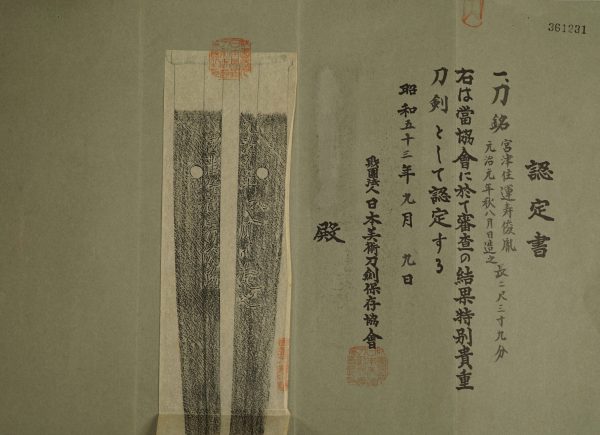 361231
認定書
一、刀 銘 宮津住運寿俊胤
元治元年秋八月日造之 長二尺三寸九分
右は當協會に於て審査の結果特別貴重
刀剣として認定する
昭和五十三年九月九日
財團法人日本美術刀剣保存協會
殿